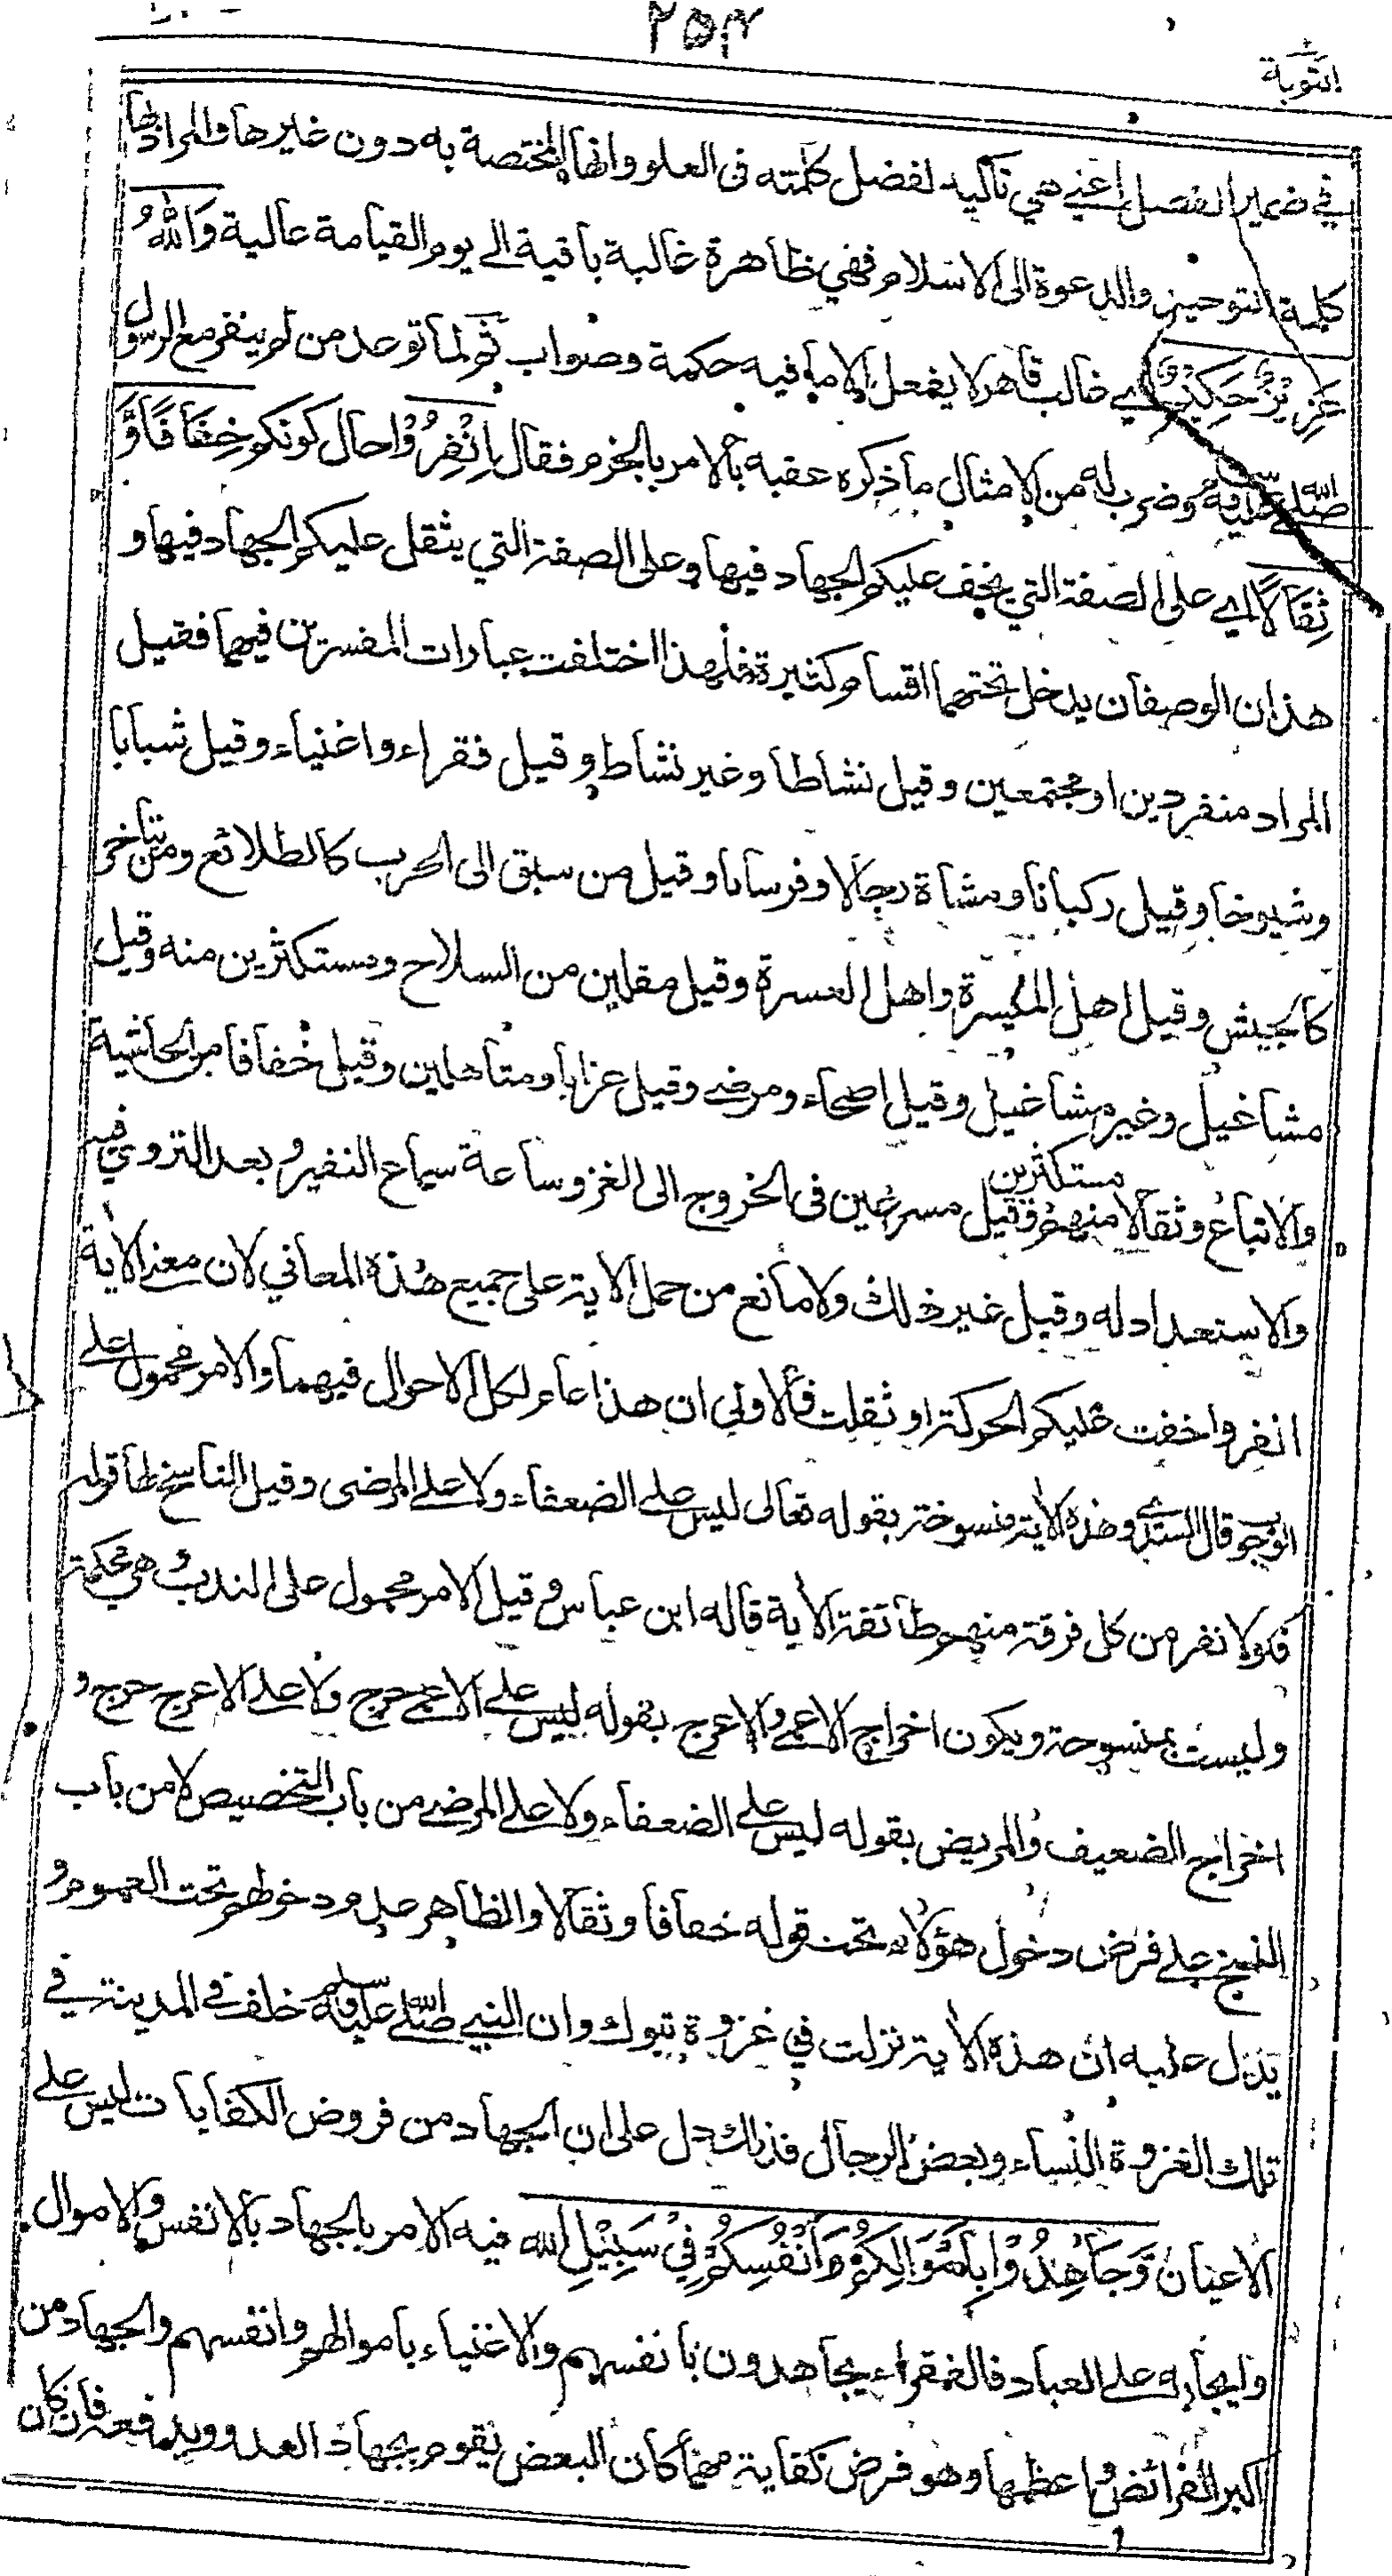 ٢٥٣
التوبة
في ضمير الفصل اعني هي تأكيد لفضل كلمته فى العلو وانها المختصة به دون غيرها والمراد بها
كلمة التوحيد والدعوة الى الاسلام فهي ظاهرة غالبة باقية الى يوم القيامة عالية وَاللّٰهُ
عَزِيْزٌ حَكِيْمٌ اي غالب قاهر لا يفعل الا ما فيه حكمة وصواب ثم لما توعد من لم ينفر مع الرسول
صلى الله عليه وسلم وضرب له من الامثال ما ذكره عقبه بالامر بالجزم فقال اِنْفِرُوْا حال كونكم خِفَافًا وَّ
ثِقَالًا اي على الصفة التي يخف عليكم الجهاد فيها وعلى الصفة التي يثقل عليكم الجهاد فيها و
هذان الوصفان يدخل تحتهما اقسام كثيرة فلهذا اختلفت عبارات المفسرين فيهما فقيل
المراد منفردين او مجتمعين وقيل نشاطا وغير نشاط وقيل فقراء واغنياء وقيل شبابا
وشيوخا وقيل ركبانا ومشاة رجالا وفرسانا وقيل من سبق الى الحرب كالطلائع ومن يتأخر
كالجيش وقيل اهل الميسرة واهل العسرة وقيل مقلين من السلاح ومستكثرين منه وقيل
مشاغيل وغير مشاغيل وقيل اصحاء ومرضى وقيل عزابا ومتأهلين وقيل خفافا من الحاشية
والاتباع وثقالا مستكثرين منهم وقيل مسرعين فى الخروج الى الغزو ساعة سماع النفير وبعد التروي فيه
والاستعداد له وقيل غير ذلك ولا مانع من حمل الاية على جميع هذه المعاني لان معنى الاية
انفروا خفت عليكم الحركة او ثقلت فالاولى ان هذا عام لكل الاحوال فيهما والامر محمول على
الوجوب قال السدي وهذه الاية منسوخة بقوله تعالى ليس على الضعفاء ولا على المرضى وقيل الناسخ لها قوله
فلولا نفر من كل فرقة منهم طائفة الاية قاله ابن عباس وقيل الامر محمول على الندب وهي محكمة
وليست بمنسوحة ويكون اخراج الاعمى والاعرج بقوله ليس على الاعمى حرج ولا على الاعرج حرج و
اخراج الضعيف والمريض بقوله ليس على الضعفاء ولا على المرضى من باب التخصيص لا من باب
النسخ على فرض دخول هؤلاء تحت قوله خفافا وثقالا والظاهر عدم دخولهم تحت العموم و
يدل عليه ان هذه الاية نزلت في غزوة تبوك وان النبي صلى الله عليه وسلم خلف فى المدينة في
تلك الغزوة النساء وبعض الرجال فذلك دل على ان الجهاد من فروض الكفايات ليس على
الاعيان وَجَاهِدُوْا بِاَمْوَالِكُمْ وَاَنْفُسِكُمْ فِيْ سَبِيْلِ الله فيه الامر بالجهاد بالانفس والاموال
وايجابه على العباد فالفقراء يجاهدون بانفسهم والاغنياء باموالهم وانفسهم والجهاد من
اكبر الفرائض واعظمها وهو فرض كفاية مهما كان البعض يقوم بجهاد العدو وبدفعه فان كان